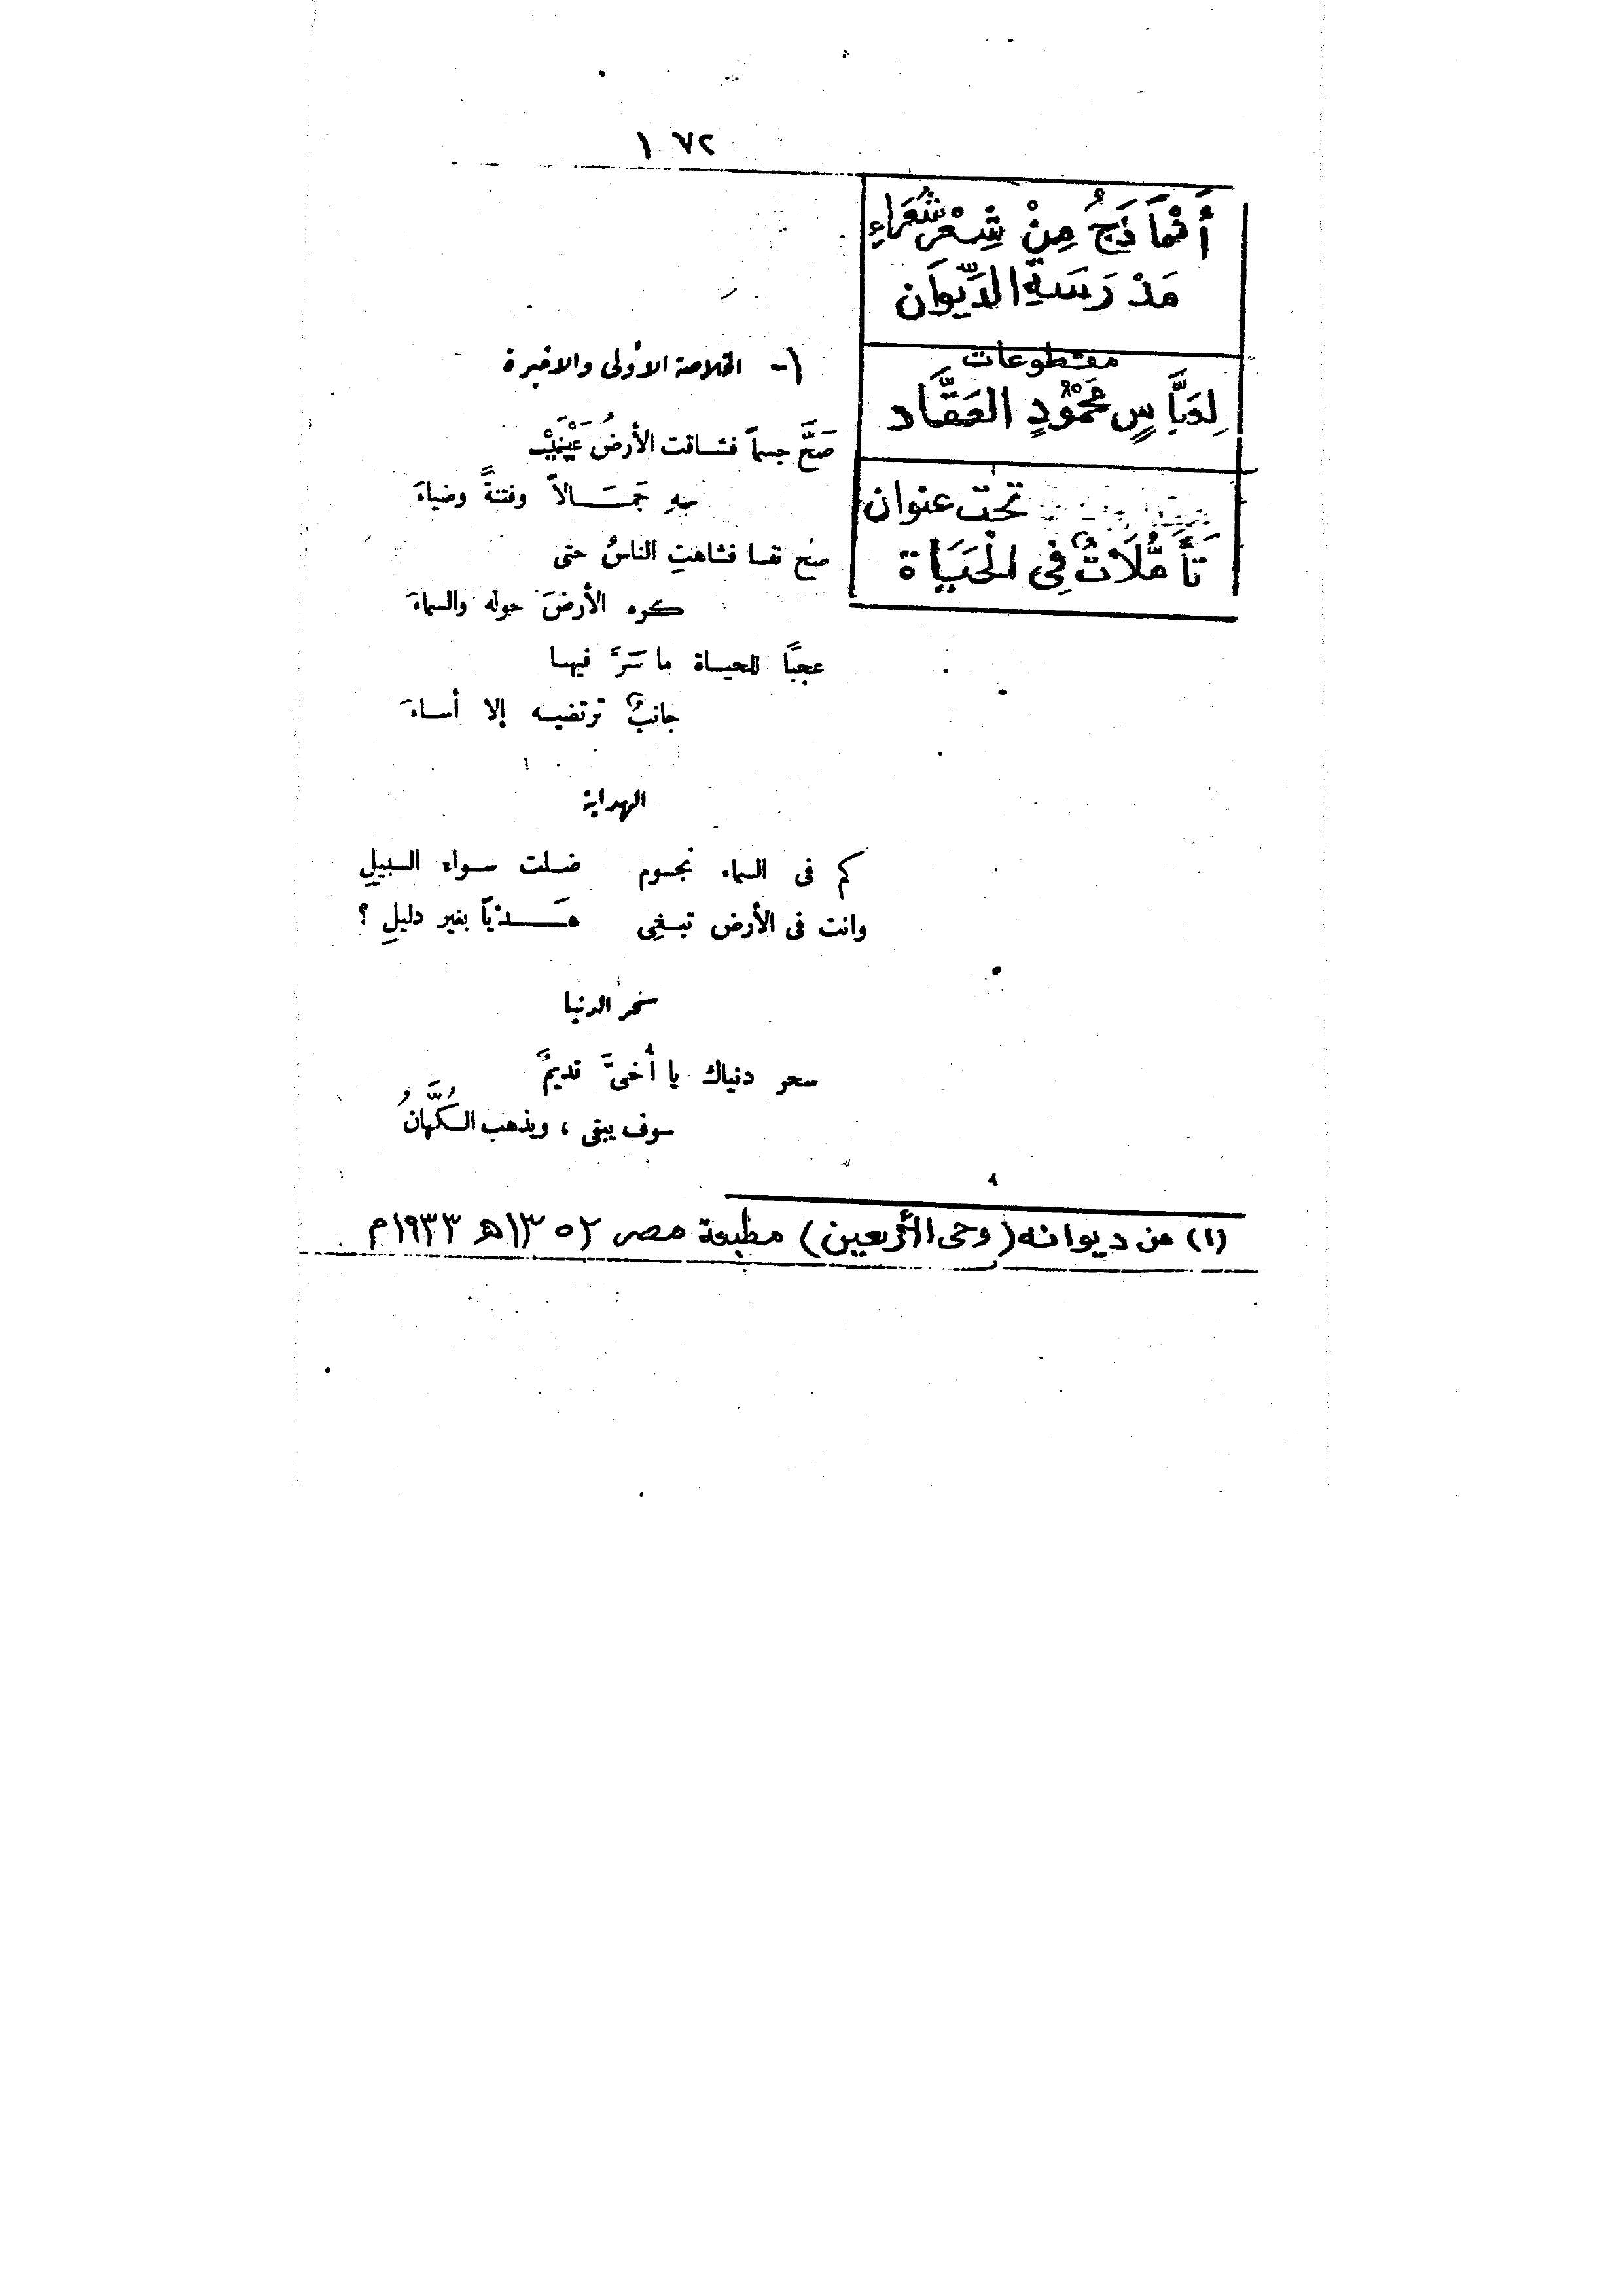 ١٧٢
أَنْمَاذَجُ مِنْ شِعْرِ شُعَرَاءِ
مَدْرَسَةِ الدِّيوَان
مقطوعات
لِعَبَّاسٍ مَحْمُودٍ العَقَّاد
تحت عنوان
تَأَمُّلَاتٌ فِي الْحَيَاة
١- الخلاصة الأولى والاخيرة
صَحَّ جسماً فشاقت الأرضُ عَيْنَيْـ
ـهِ جَمَـــالاً وفتنةً وضياءَ
صح نفسا فشاهتِ الناسُ حتى
كره الأرضَ حوله والسماءَ
عجبًا للحياة ما سَرَّ فيها
جانبٌ ترتضيه إلا أساءَ
الهداية
كم فى السماء نجوم ضلت سواء السبيلِ
وانت فى الأرض تبغِى هَـــدْياً بغير دليلِ ؟
سحر الدنيا
سحر دنياك يا أُخىَّ قديمٌ
سوف يبقى ، ويذهب الكُهَّانُ
(١) من ديوانه (وحى الأربعين) مطبعة مصر ١٣٥٢هـ ١٩٣٣م